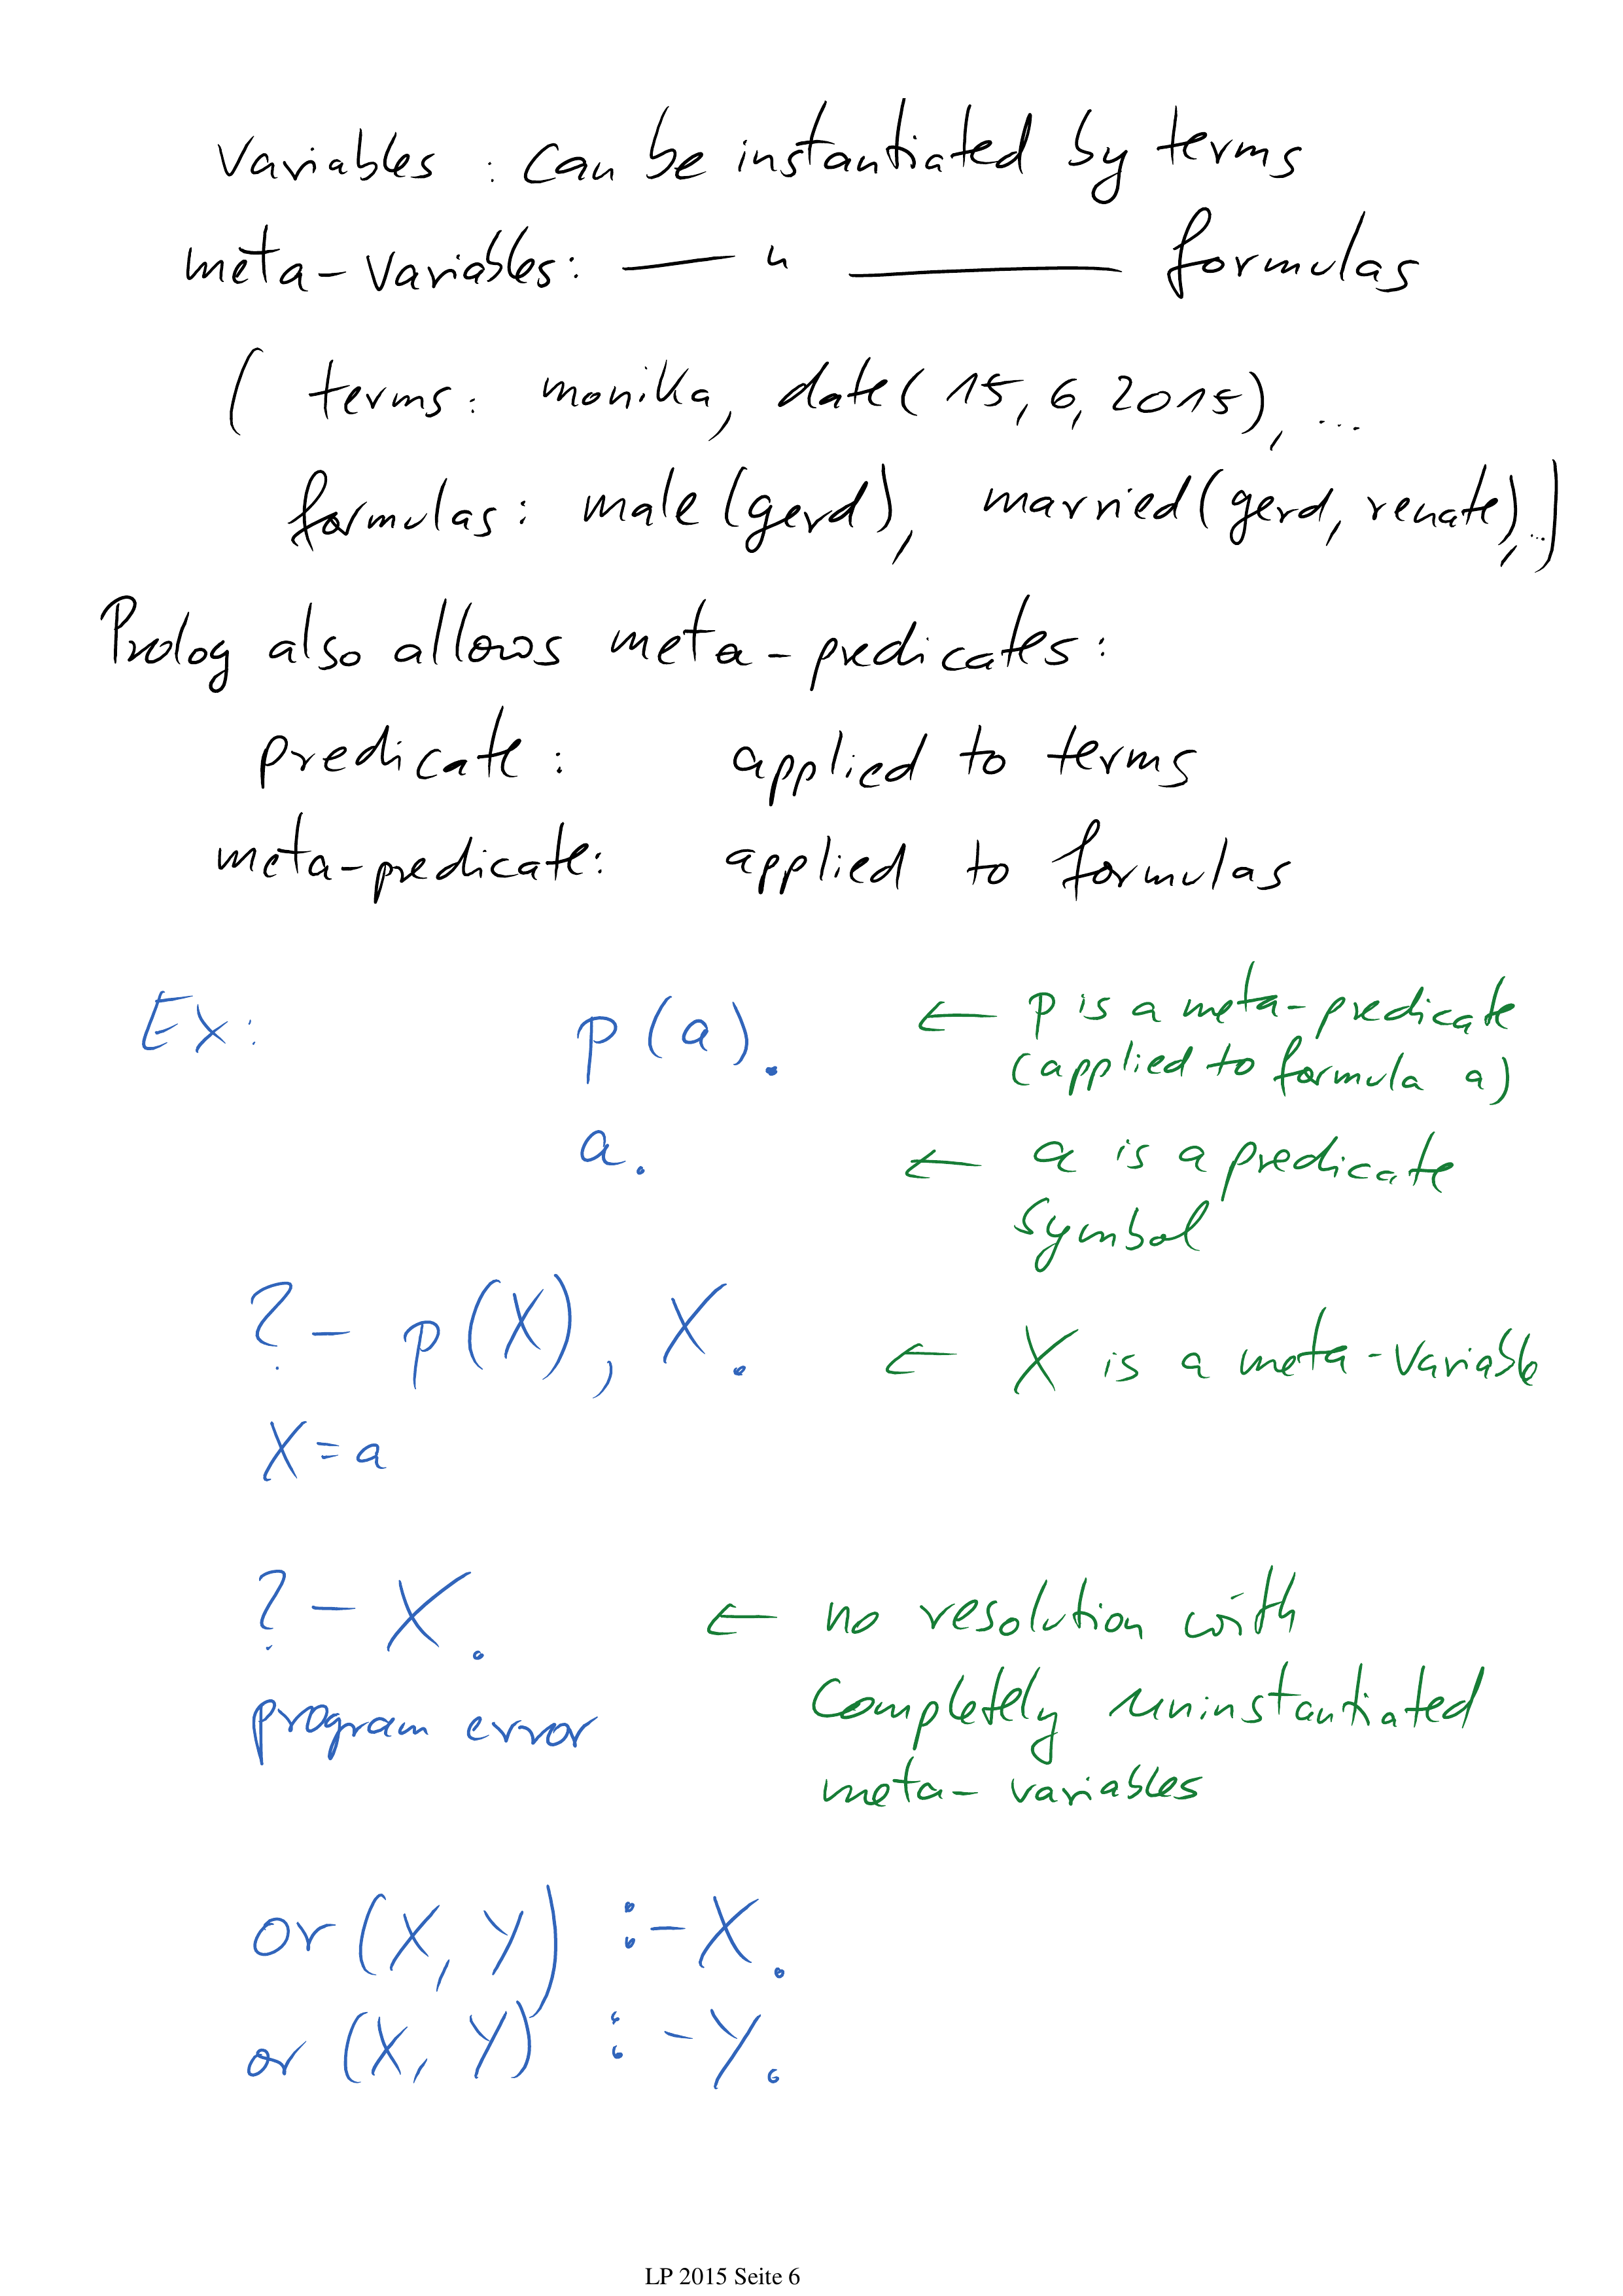 variables : can be instantiated by terms
meta-variables: — " — formulas
( terms: monika, date(15, 6, 2015), ...
formulas: male(gerd), married(gerd, renate), ...)
Prolog also allows meta-predicates:
predicate: applied to terms
meta-predicate: applied to formulas
Ex: p(a). ← p is a meta-predicate
(applied to formula a)
a. ← a is a predicate
symbol
?- p(X), X. ← X is a meta-variable
X = a
?- X. ← no resolution with
program error completely uninstantiated
meta-variables
or(X, Y) :- X.
or(X, Y) :- Y.
LP 2015 Seite 6